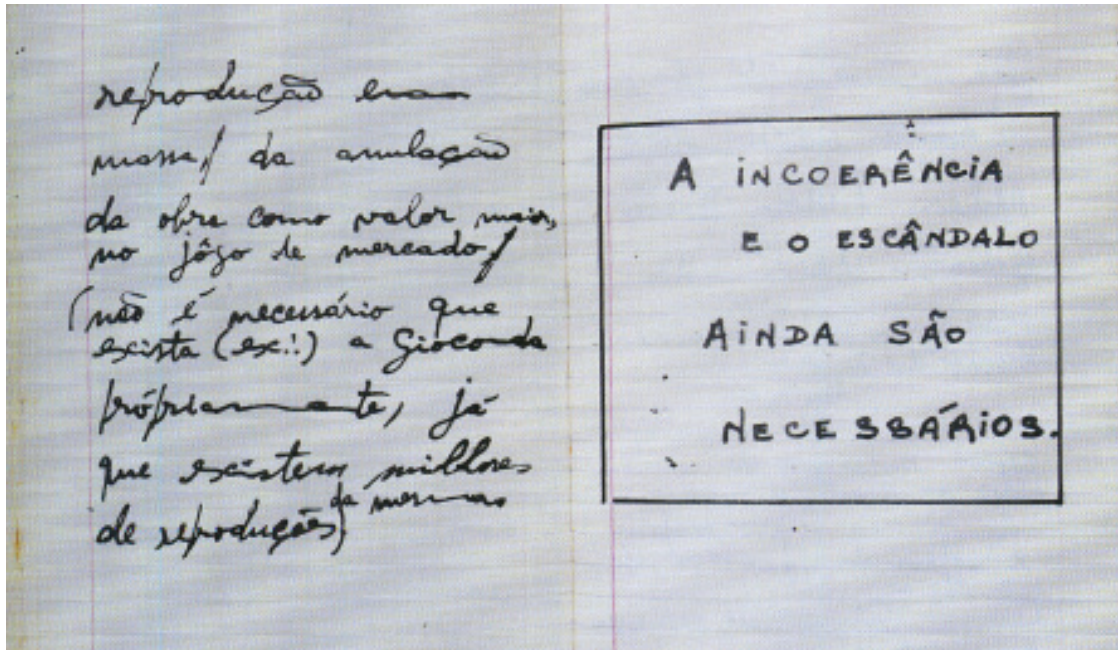 reprodução em
massa/ da anulação
da obra como valor maior,
no jôgo de mercado/
(não é necessário que
exista (ex:!) a Gioconda
própriamente, já
que existem milhões
de reproduções) da mesma
A INCOERÊNCIA
E O ESCÂNDALO
AINDA SÃO
NECESSÁRIOS.